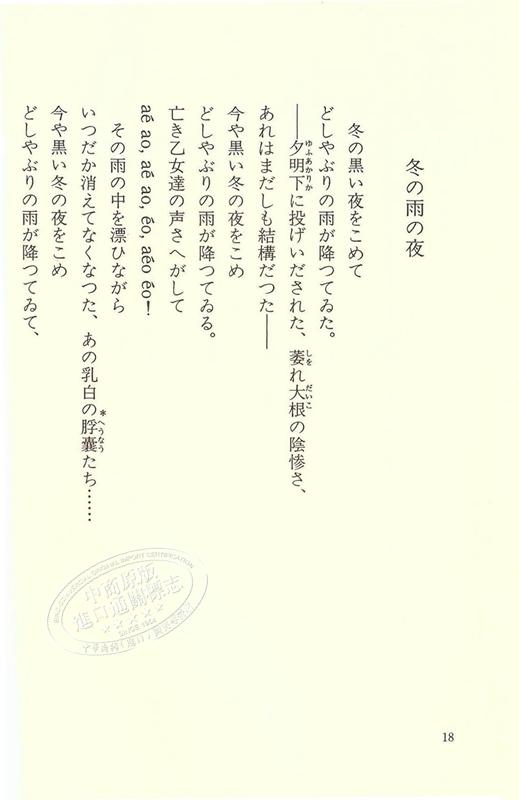 冬の雨の夜
冬の黒い夜をこめて
どしやぶりの雨が降つてゐた。
――夕明下に投げいだされた、萎れ大根の陰惨さ、
あれはまだしも結構だつた――
今や黒い冬の夜をこめ
どしやぶりの雨が降つてゐる。
亡き乙女達の声さへがして
aé ao, aé ao, éo, aéo éo!
その雨の中を漂ひながら
いつだか消えてなくなつた、あの乳白の脬囊たち……
今や黒い冬の夜をこめ
どしやぶりの雨が降つてゐて、
中商原版
進口通關標志
18